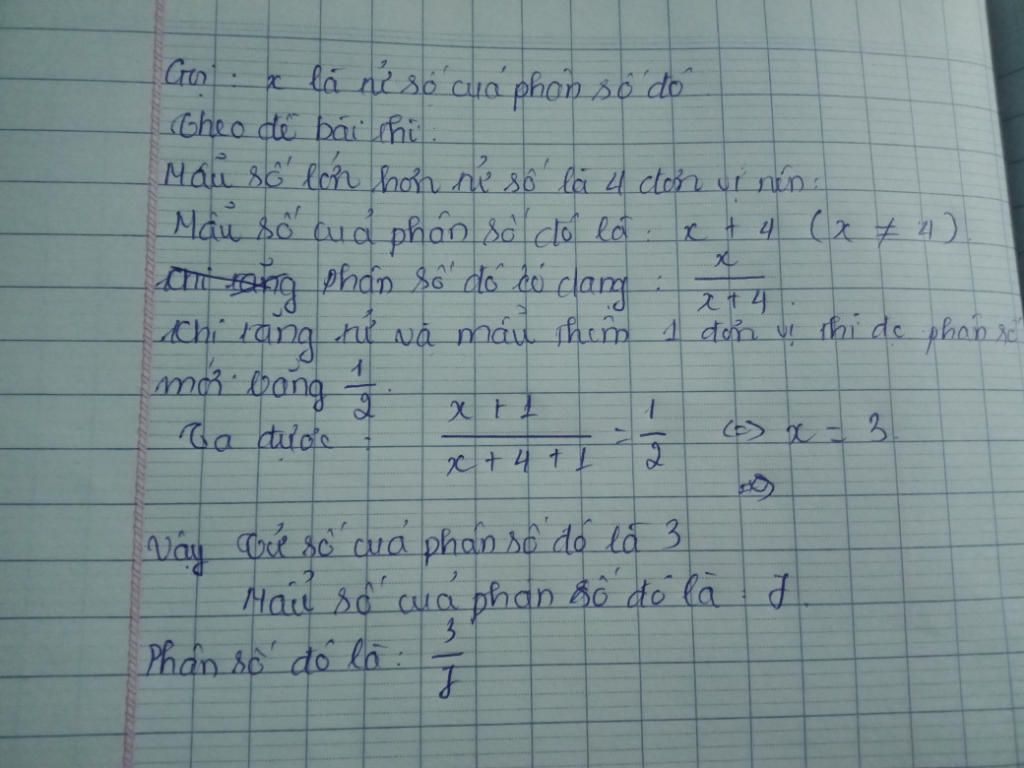 Gọi : x là tử số của phân số đó
Theo đề bài thì :
Mẫu số lớn hơn tử số là 4 đơn vị nên :
Mẫu số của phân số đó là : x + 4 (x ≠ 4)
phân số đó có dạng : x/(x+4).
Khi tăng tử và mẫu thêm 1 đơn vị thì đc phân số
mới bằng 1/2.
Ta được : (x + 1)/(x + 4 + 1) = 1/2 <=> x = 3
=>
Vậy Tử số của phân số đó là 3
Mẫu số của phân số đó là : 7.
Phân số đó là : 3/7